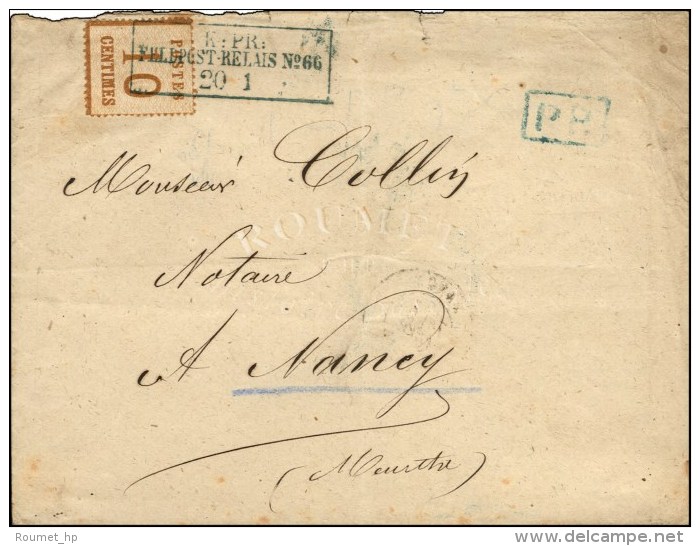 POSTES
10
CENTIMES
K: PR:
FELDPOST-RELAIS No 66
20 1
P.P.
Monsieur Collin
ROUMET
Notaire
A Nancy
(Meurthe)
Roumet_hp
©delcampe.net